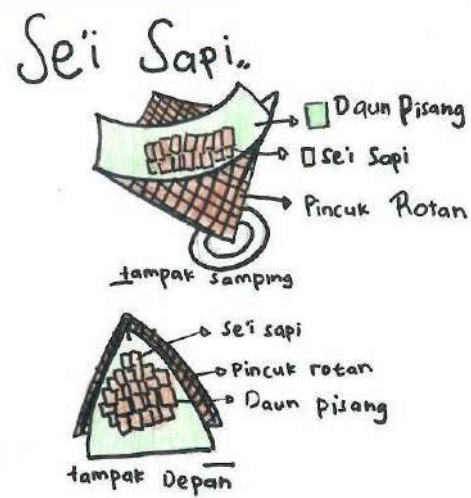 Se'i Sapi..
Daun Pisang
Se'i Sapi
Pincuk Rotan
tampak samping
Se'i sapi
Pincuk rotan
Daun pisang
tampak Depan